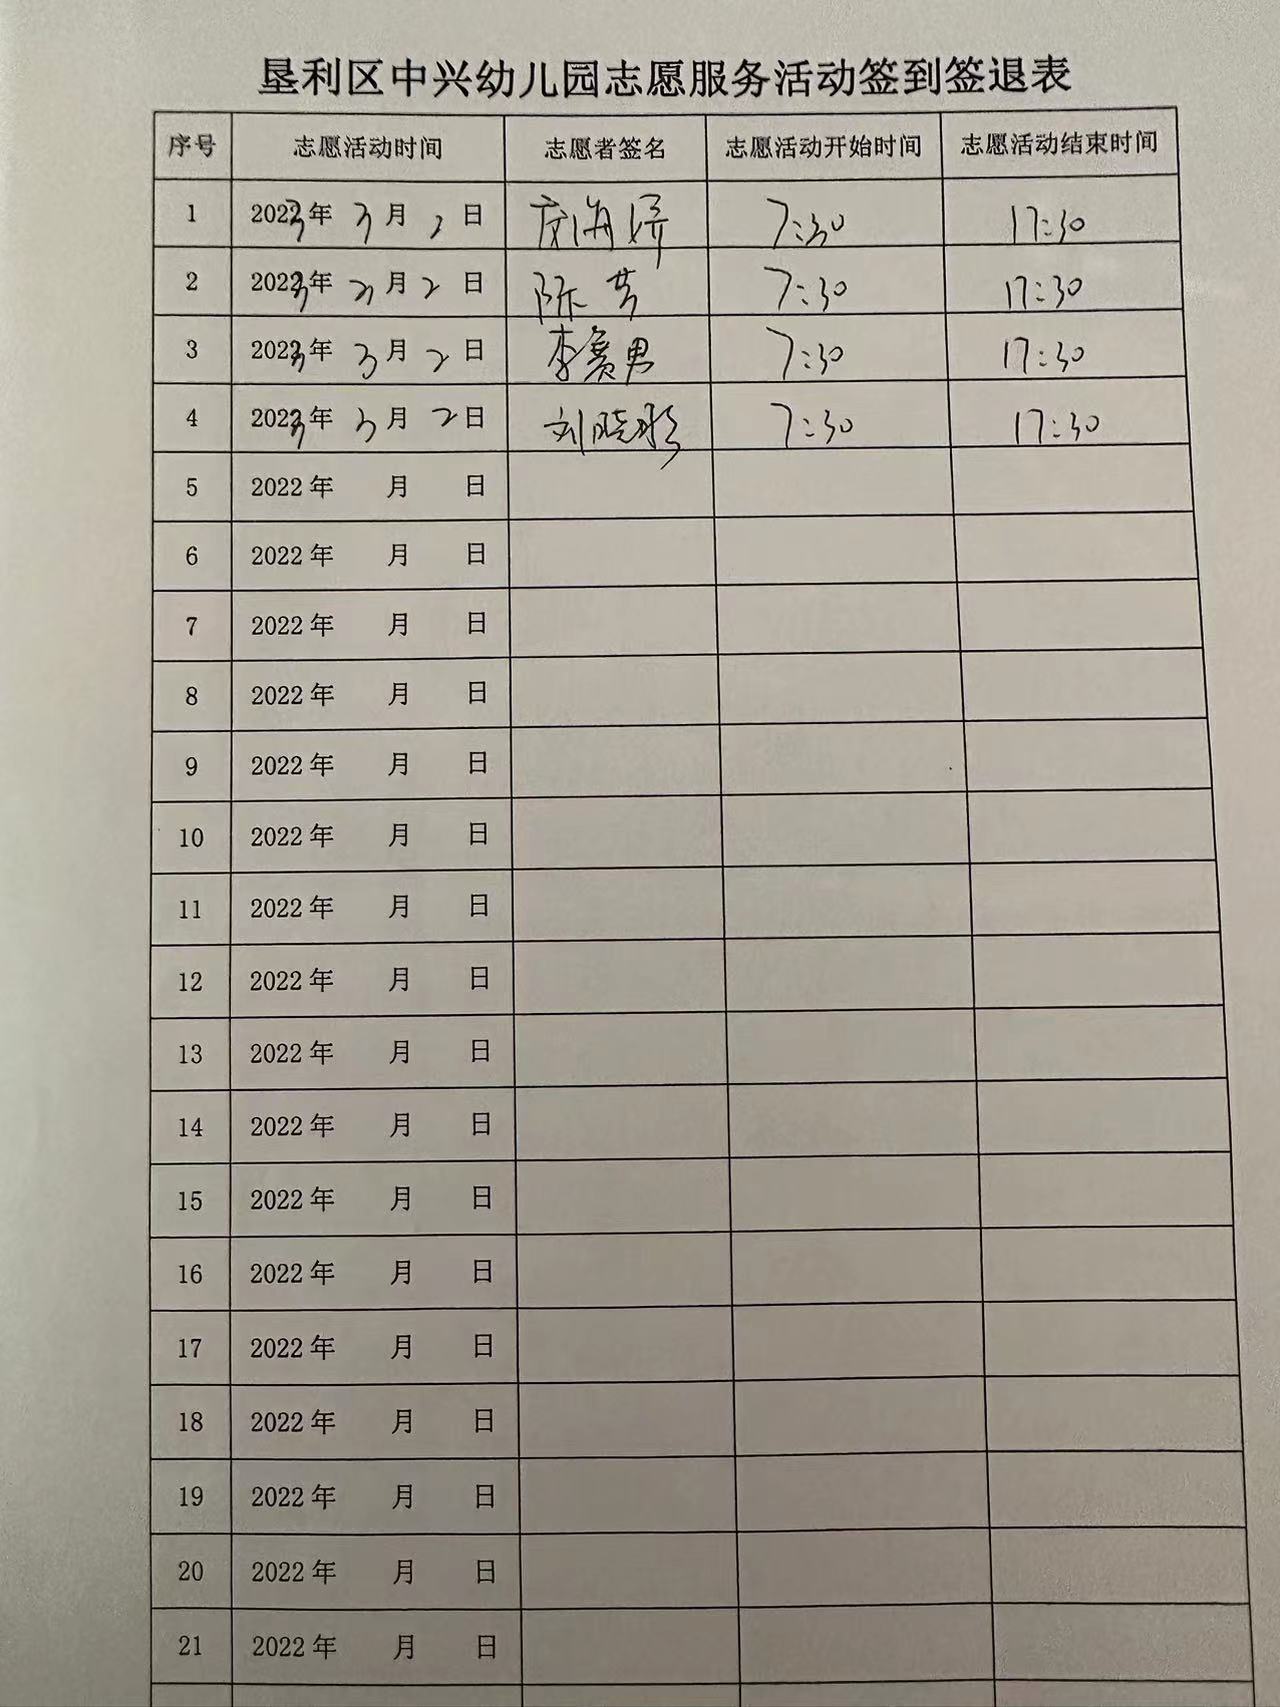 垦利区中兴幼儿园志愿服务活动签到签退表
序号 志愿活动时间 志愿者签名 志愿活动开始时间 志愿活动结束时间
1 2023年 3月 2日 海 7:30 17:30
2 2023年 3月 2日 陈芳 7:30 17:30
3 2023年 3月 2日 李赛男 7:30 17:30
4 2023年 3月 2日 刘晓彤 7:30 17:30
5 2022年 月 日
6 2022年 月 日
7 2022年 月 日
8 2022年 月 日
9 2022年 月 日
10 2022年 月 日
11 2022年 月 日
12 2022年 月 日
13 2022年 月 日
14 2022年 月 日
15 2022年 月 日
16 2022年 月 日
17 2022年 月 日
18 2022年 月 日
19 2022年 月 日
20 2022年 月 日
21 2022年 月 日